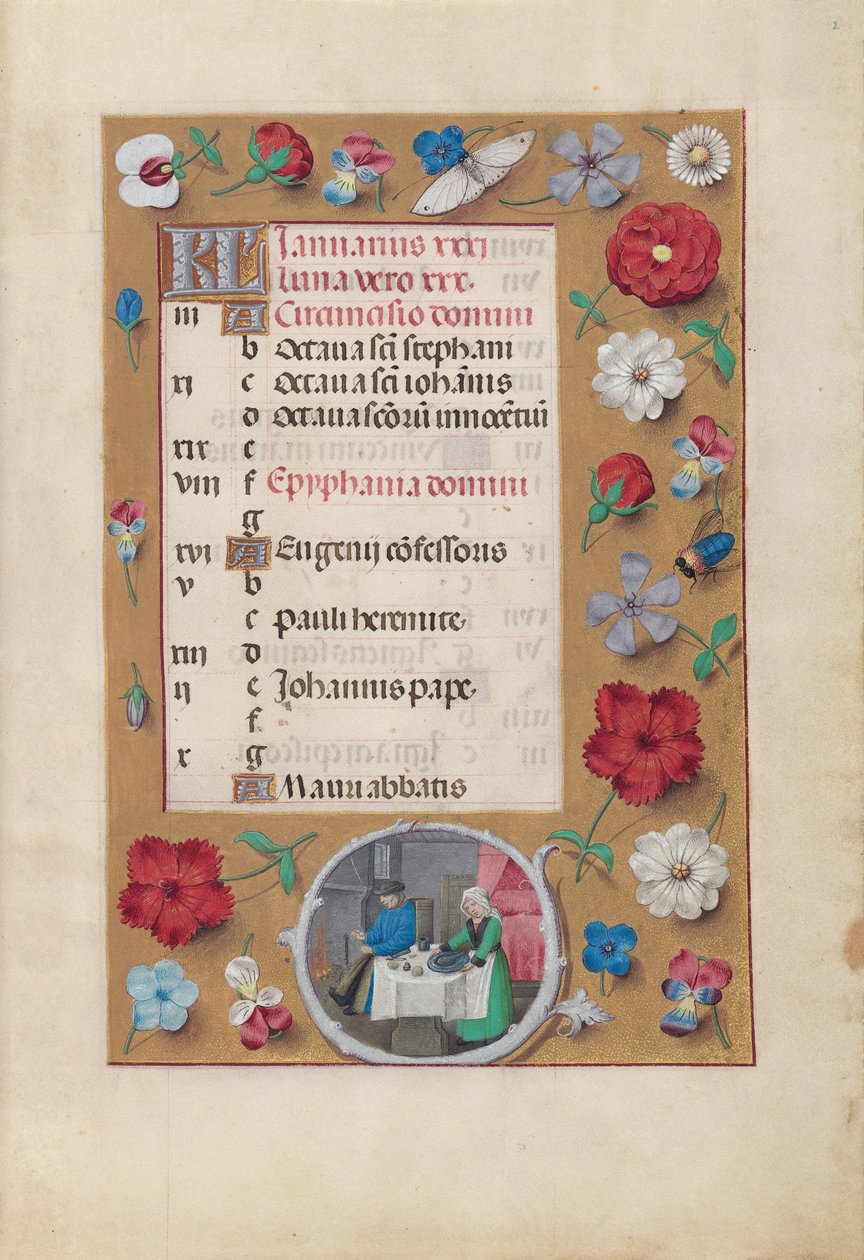 2
KL Januarius xxxj
Luna vero xxx.
iii A Circumcisio domini
b Octava sci stephani
xi c Octava sci iohānis
d Octava scōrū innocētiū
xix e
viii f Epyphania domini
g
xvi A Eugenij cōfessoris
v b
c Pauli heremite.
xiii d
ij e Johannis pape.
f
x g
A Mauri abbatis